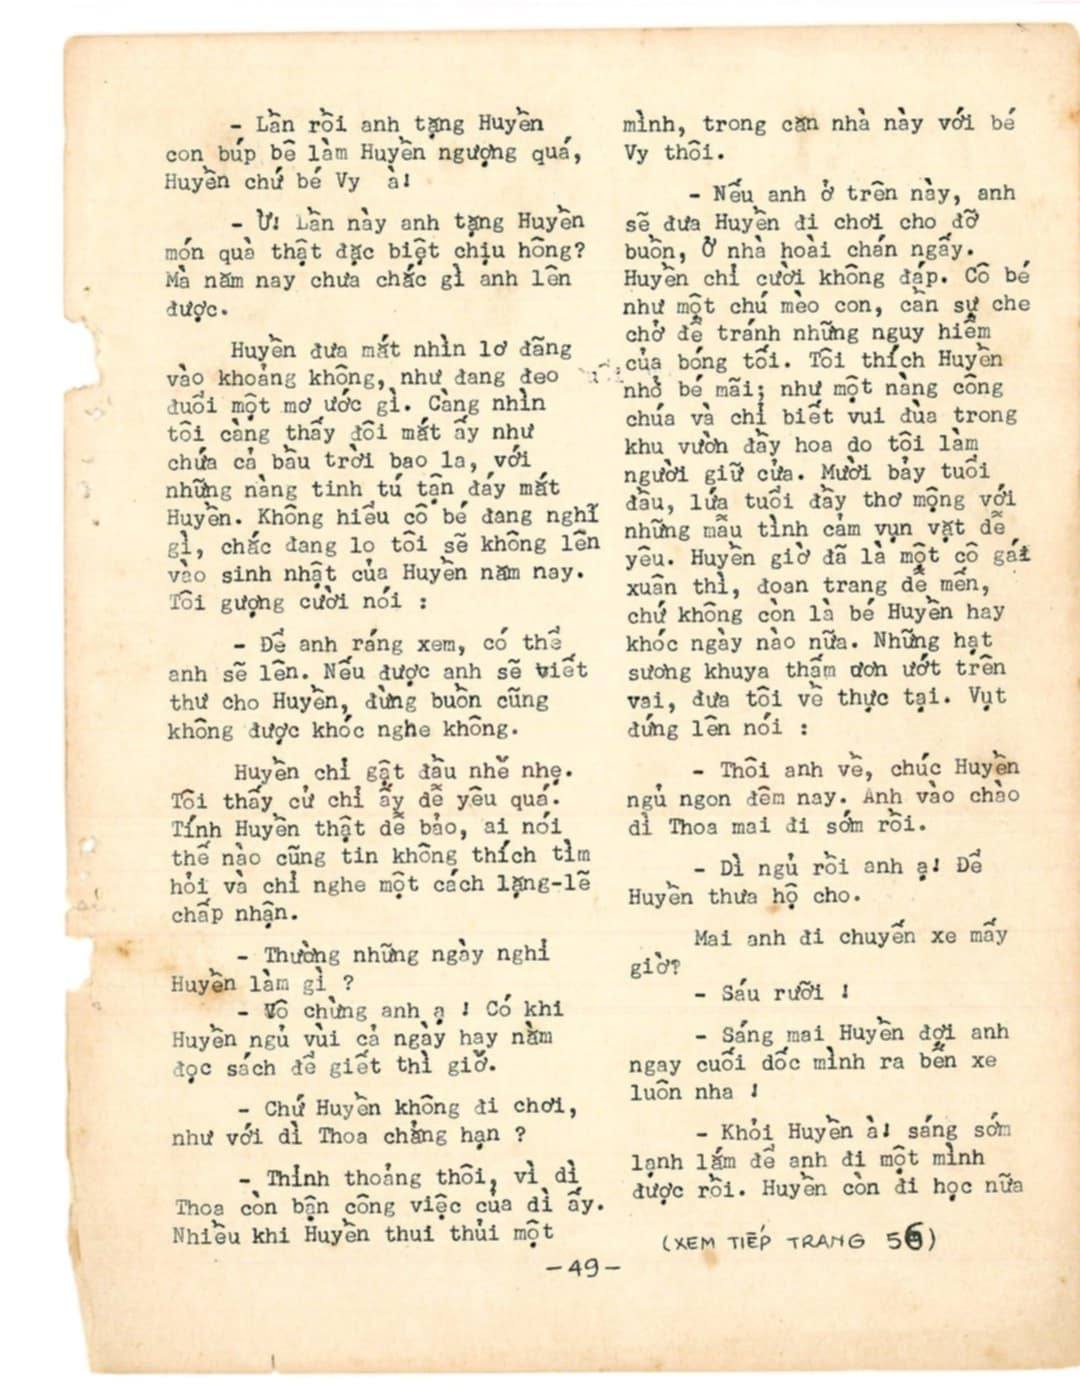 - Lần rồi anh tặng Huyền
con búp bê làm Huyền ngượng quá,
Huyền chứ bé Vy à!
- Ừ! Lần này anh tặng Huyền
món quà thật đặc biệt chịu hông?
Mà năm nay chưa chắc gì anh lên
được.
Huyền đưa mắt nhìn lơ đãng
vào khoảng không, như đang đeo
đuổi một mơ ước gì. Càng nhìn
tôi càng thấy đôi mắt ấy như
chứa cả bầu trời bao la, với
những nàng tinh tú tận đáy mắt
Huyền. Không hiểu cô bé đang nghĩ
gì, chắc đang lo tôi sẽ không lên
vào sinh nhật của Huyền năm nay.
Tôi gượng cười nói :
- Để anh ráng xem, có thể
anh sẽ lên. Nếu được anh sẽ viết
thư cho Huyền, đừng buồn cũng
không được khóc nghe không.
Huyền chỉ gật đầu nhè nhẹ.
Tôi thấy cử chỉ ấy dễ yêu quá.
Tính Huyền thật dễ bảo, ai nói
thế nào cũng tin không thích tìm
hỏi và chỉ nghe một cách lặng-lẽ
chấp nhận.
- Thường những ngày nghỉ
Huyền làm gì ?
- Vô chừng anh ạ ! Có khi
Huyền ngủ vùi cả ngày hay nằm
đọc sách để giết thì giờ.
- Chứ Huyền không đi chơi,
như với dì Thoa chẳng hạn ?
- Thỉnh thoảng thôi, vì dì
Thoa còn bận công việc của dì ấy.
Nhiều khi Huyền thui thủi một
mình, trong căn nhà này với bé
Vy thôi.
- Nếu anh ở trên này, anh
sẽ đưa Huyền đi chơi cho đỡ
buồn, Ở nhà hoài chán ngấy.
Huyền chỉ cười không đáp. Cô bé
như một chú mèo con, cần sự che
chở để tránh những nguy hiểm
của bóng tối. Tôi thích Huyền
nhỏ bé mãi; như một nàng công
chúa và chỉ biết vui đùa trong
khu vườn đầy hoa do tôi làm
người giữ cửa. Mười bảy tuổi
đầu, lứa tuổi đầy thơ mộng với
những mẫu tình cảm vụn vặt dễ
yêu. Huyền giờ đã là một cô gái
xuân thì, đoan trang dễ mến,
chứ không còn là bé Huyền hay
khóc ngày nào nữa. Những hạt
sương khuya thấm ươn ướt trên
vai, đưa tôi về thực tại. Vụt
đứng lên nói :
- Thôi anh về, chúc Huyền
ngủ ngon đêm nay. Anh vào chào
dì Thoa mai đi sớm rồi.
- Dì ngủ rồi anh ạ! Để
Huyền thưa hộ cho.
Mai anh đi chuyến xe mấy
giờ?
- Sáu rưỡi !
- Sáng mai Huyền đợi anh
ngay cuối dốc mình ra bến xe
luôn nha !
- Khỏi Huyền à! sáng sớm
lạnh lắm để anh đi một mình
được rồi. Huyền còn đi học nữa
(XEM TIẾP TRANG 56)
-49-